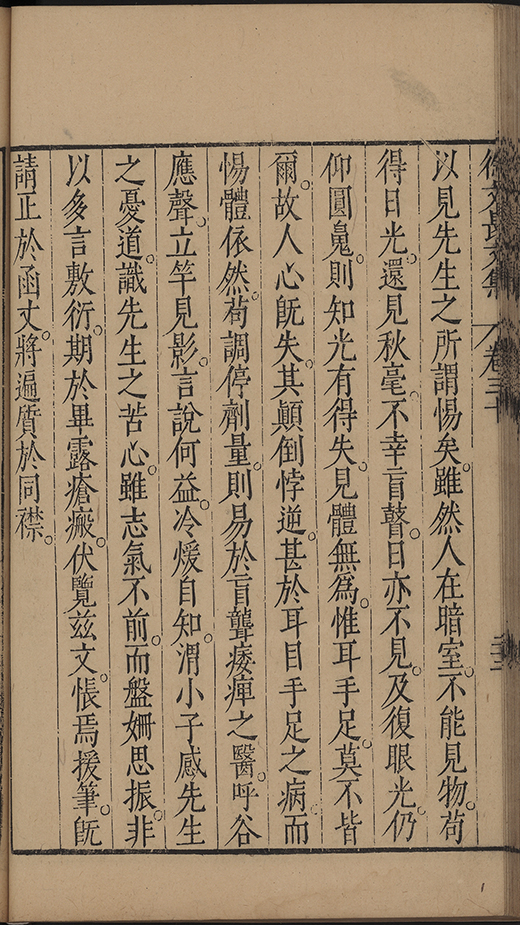 徐文長文集 卷三十
以見先生之所謂惕矣。雖然人在暗室。不能見物。茍
得日光。還見秋毫。不幸盲瞽。日亦不見。及復眼光。仍
仰圓𠒋。則知光有得失。見體無為。惟耳手足。莫不皆
爾。故人心旣失。其顛倒悖逆。甚於耳目手足之病。而
惕體依然。茍調停劑量。則易於盲聾痿痺之醫。呼谷
應聲。立竿見影。言說何益。冷煖自知。渭小子感先生
之憂道。識先生之苦心。雖志氣不前。而盤姍思振。非
以多言敷衍。期於畢露瘡瘢。伏覽茲文。悵焉援筆。旣
請正於函丈。將遍質於同襟。